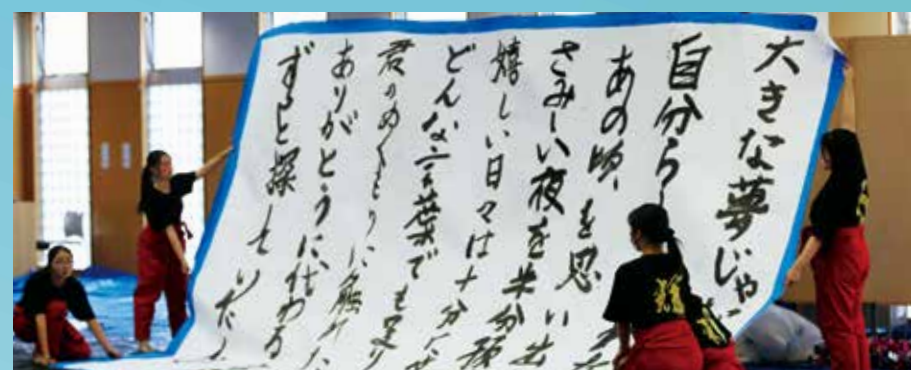 大きな夢じゃ
自分ら
あの頃を思い出
さみしい夜を半分
嬉しい日々は十分に
どんな言葉でも足り
君のぬくもりに触れた
ありがとうに代わる
ずっと探していた
輝